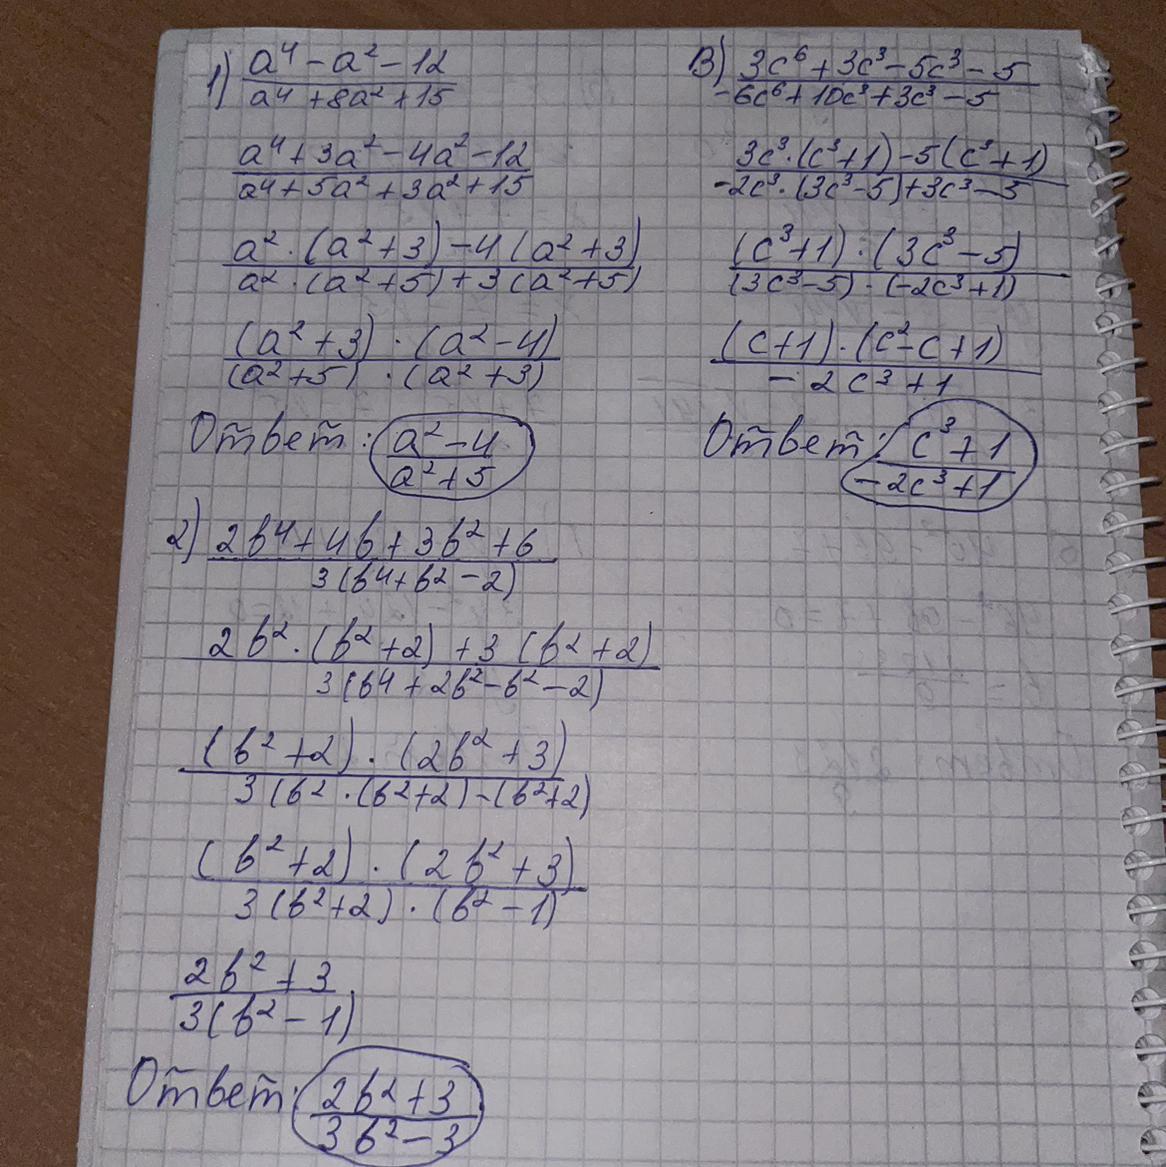 1) (a⁴ - a² - 12)/(a⁴ + 8a² + 15)
(a⁴ + 3a² - 4a² - 12)/(a⁴ + 5a² + 3a² + 15)
(a² · (a² + 3) - 4 (a² + 3))/(a² · (a² + 5) + 3 (a² + 5))
((a² + 3) · (a² - 4))/((a² + 5) · (a² + 3))
Ответ: (a² - 4)/(a² + 5)
2) (2b⁴ + 4b + 3b² + 6)/(3(b⁴ + b² - 2))
(2b² · (b² + 2) + 3 (b² + 2))/(3(b⁴ + 2b² - b² - 2))
((b² + 2) · (2b² + 3))/(3(b² · (b² + 2) - (b² + 2))
((b² + 2) · (2b² + 3))/(3(b² + 2) · (b² - 1))
(2b² + 3)/(3(b² - 1))
Ответ: (2b² + 3)/(3b² - 3)
В) (3c⁶ + 3c³ - 5c³ - 5)/(-6c⁶ + 10c³ + 3c³ - 5)
(3c³ · (c³ + 1) - 5 (c³ + 1))/(-2c³ · (3c³ - 5) + 3c³ - 5)
((c³ + 1) · (3c³ - 5))/((3c³ - 5) · (-2c³ + 1))
((c + 1) · (c² - c + 1))/(-2c³ + 1)
Ответ: (c³ + 1)/(-2c³ + 1)